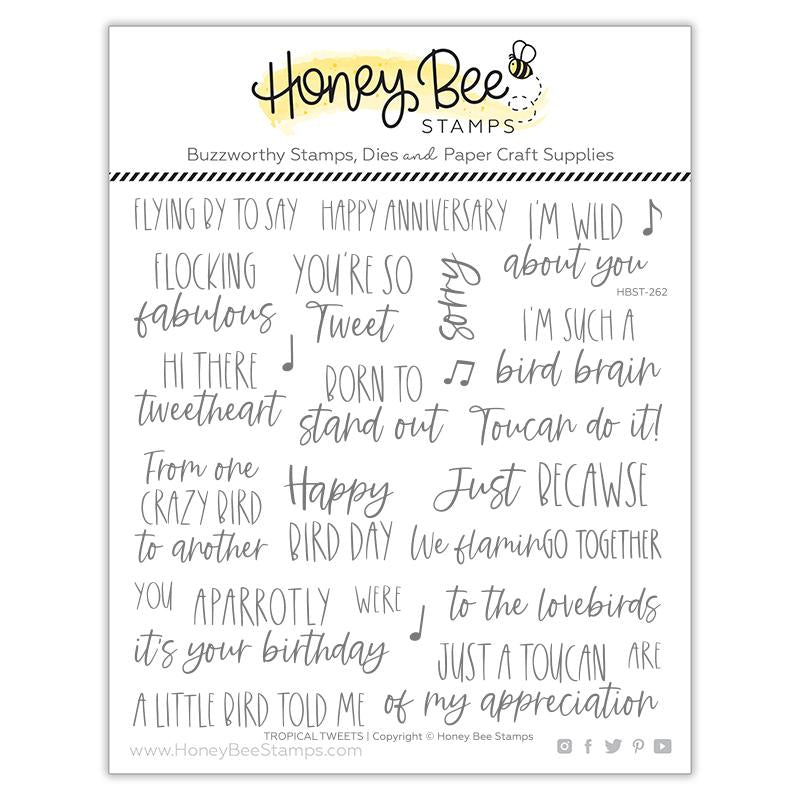 Honey Bee
STAMPS
Buzzworthy Stamps, Dies and Paper Craft Supplies
FLYING BY TO SAY
HAPPY ANNIVERSARY
I'M WILD
about you
HBST-262
FLOCKING
fabulous
YOU'RE SO
Tweet
sorry
I'M SUCH A
bird brain
HI THERE
tweetheart
BORN TO
stand out
Toucan do it!
From one
CRAZY BIRD
to another
Happy
BIRD DAY
Just BECAWSE
We flaminGO TOGETHER
YOU
APARROTLY
WERE
it's your birthday
to the lovebirds
JUST A TOUCAN
ARE
A LITTLE BIRD TOLD ME
of my appreciation
TROPICAL TWEETS | Copyright © Honey Bee Stamps
www.HoneyBeeStamps.com